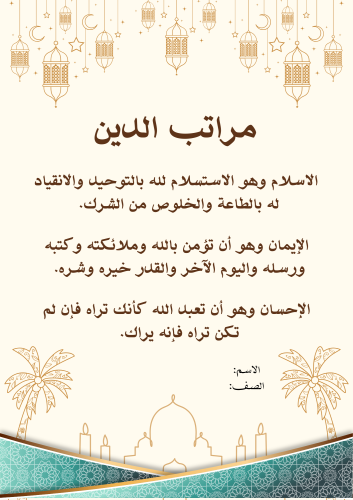 مراتب الدين
الاسلام وهو الاستسلام لله بالتوحيد والانقياد
له بالطاعة والخلوص من الشرك.
الإيمان وهو أن تؤمن بالله وملائكته وكتبه
ورسله واليوم الآخر والقدر خيره وشره.
الإحسان وهو أن تعبد الله كأنك تراه فإن لم
تكن تراه فإنه يراك.
الاسم:
الصف: